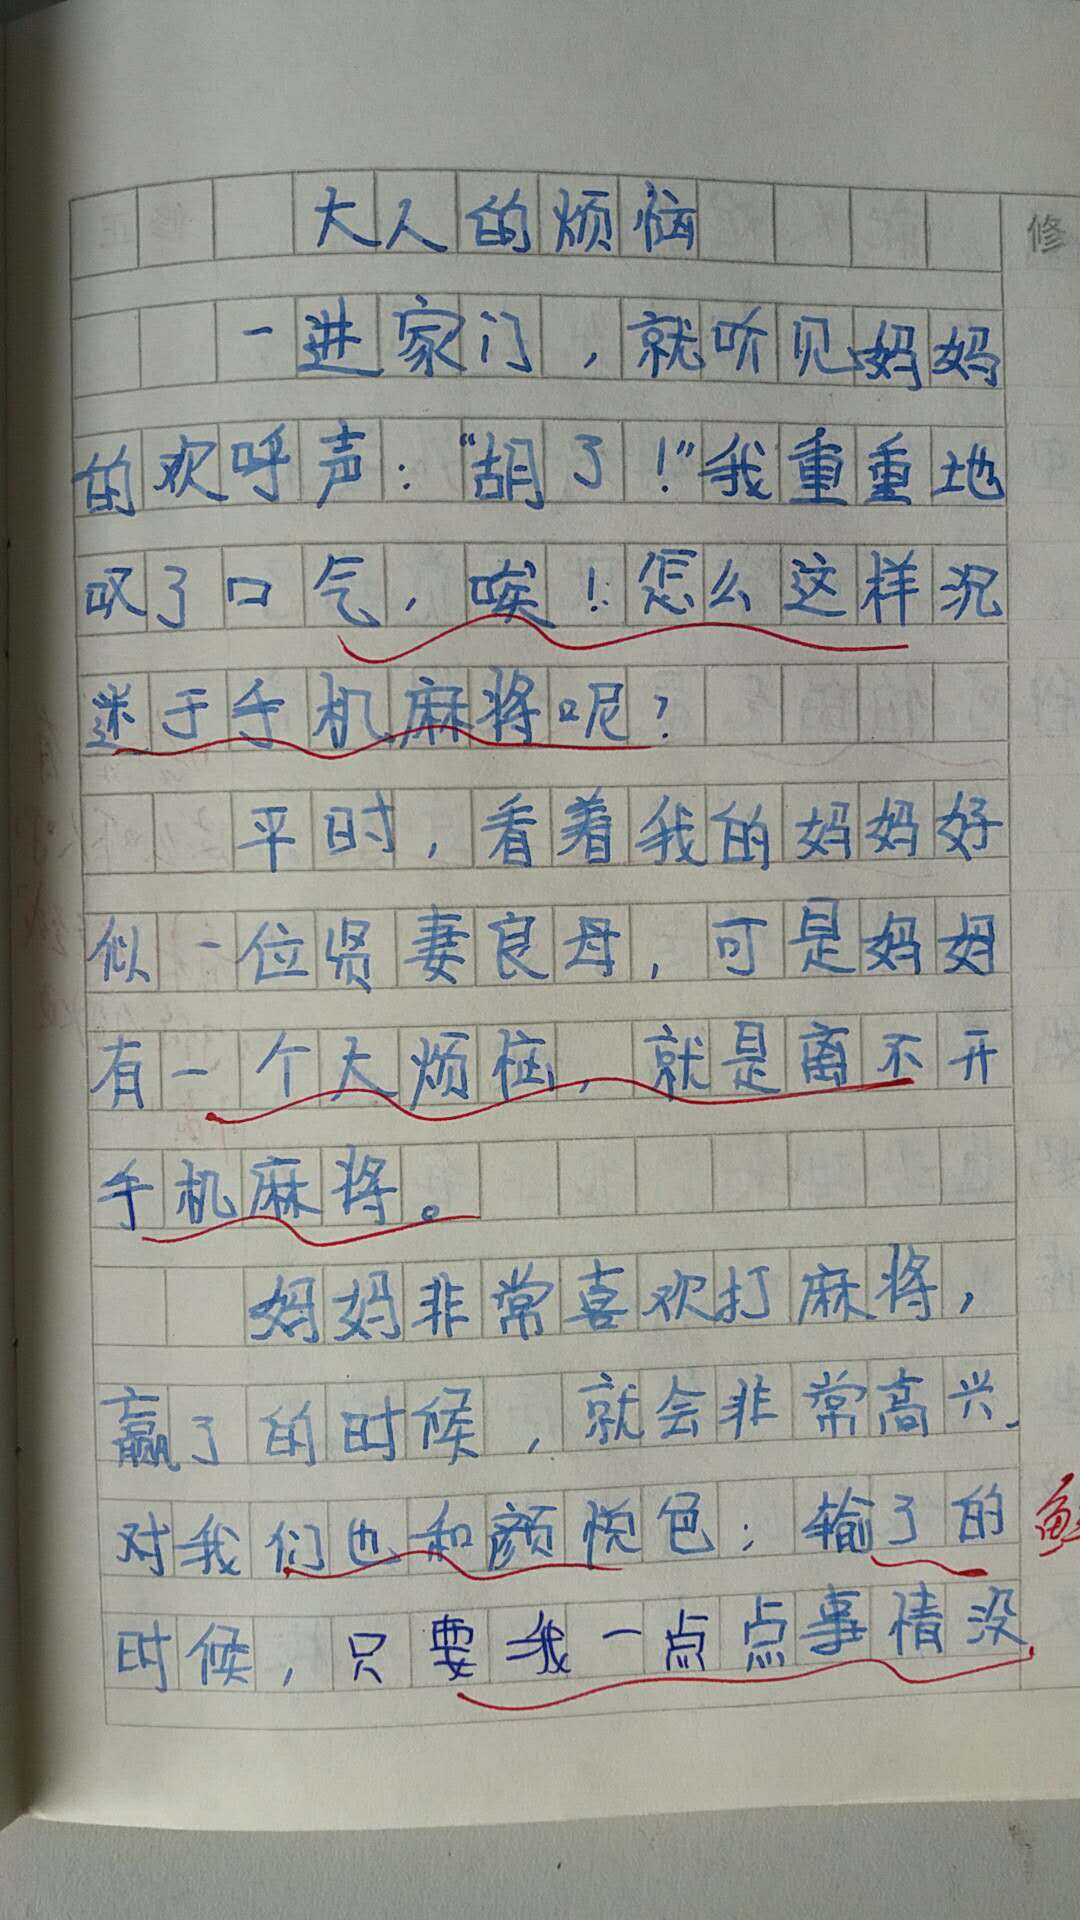 大人的烦恼
修
一进家门，就听见妈妈
的欢呼声：“胡了！”我重重地
叹了口气，唉！怎么这样沉
迷于手机麻将呢？
平时，看着我的妈妈好
似一位贤妻良母，可是妈妈
有一个大烦恼，就是离不开
手机麻将。
妈妈非常喜欢打麻将，
赢了的时候，就会非常高兴，
对我们也和颜悦色；输了的
时候，只要我一点点事情没